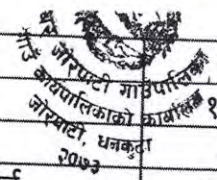 जोरपाटी गाउँपालिका
गाउँ कार्यपालिकाको कार्यालय
जोरपाटी, धनकुटा
२०७३